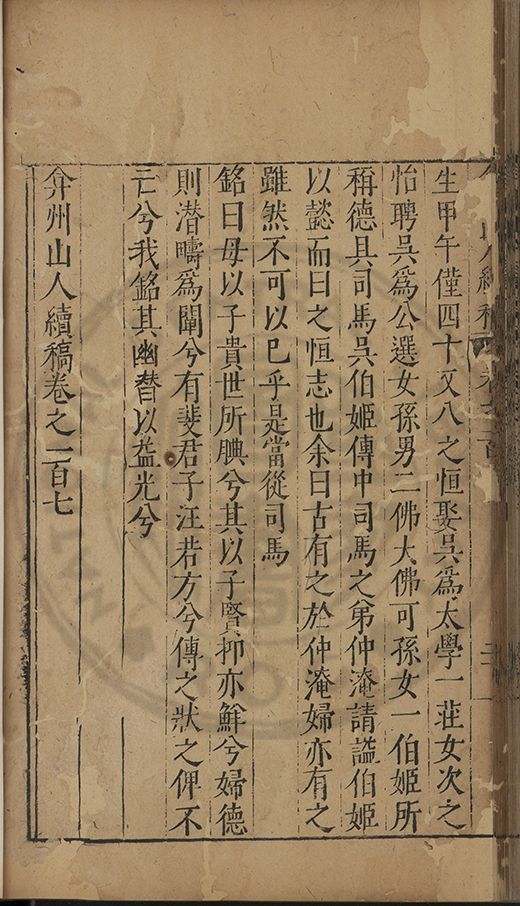 生甲午僅四十又八之恒娶吳爲太學一莊女次之
怡聘吳爲公選女孫男二佛大佛可孫女一伯姬所
稱德具司馬吳伯姬傳中司馬之弟仲淹請謚伯姬
以懿而曰之恒志也余曰古有之於仲淹婦亦有之
雖然不可以已乎是當從司馬
銘曰母以子貴世所腆兮其以子賢抑亦鮮兮婦德
則潛疇爲闡兮有斐君子汪若方兮傳之狀之俾不
亡兮我銘其幽替以益光兮
弇州山人續稿卷之一百七